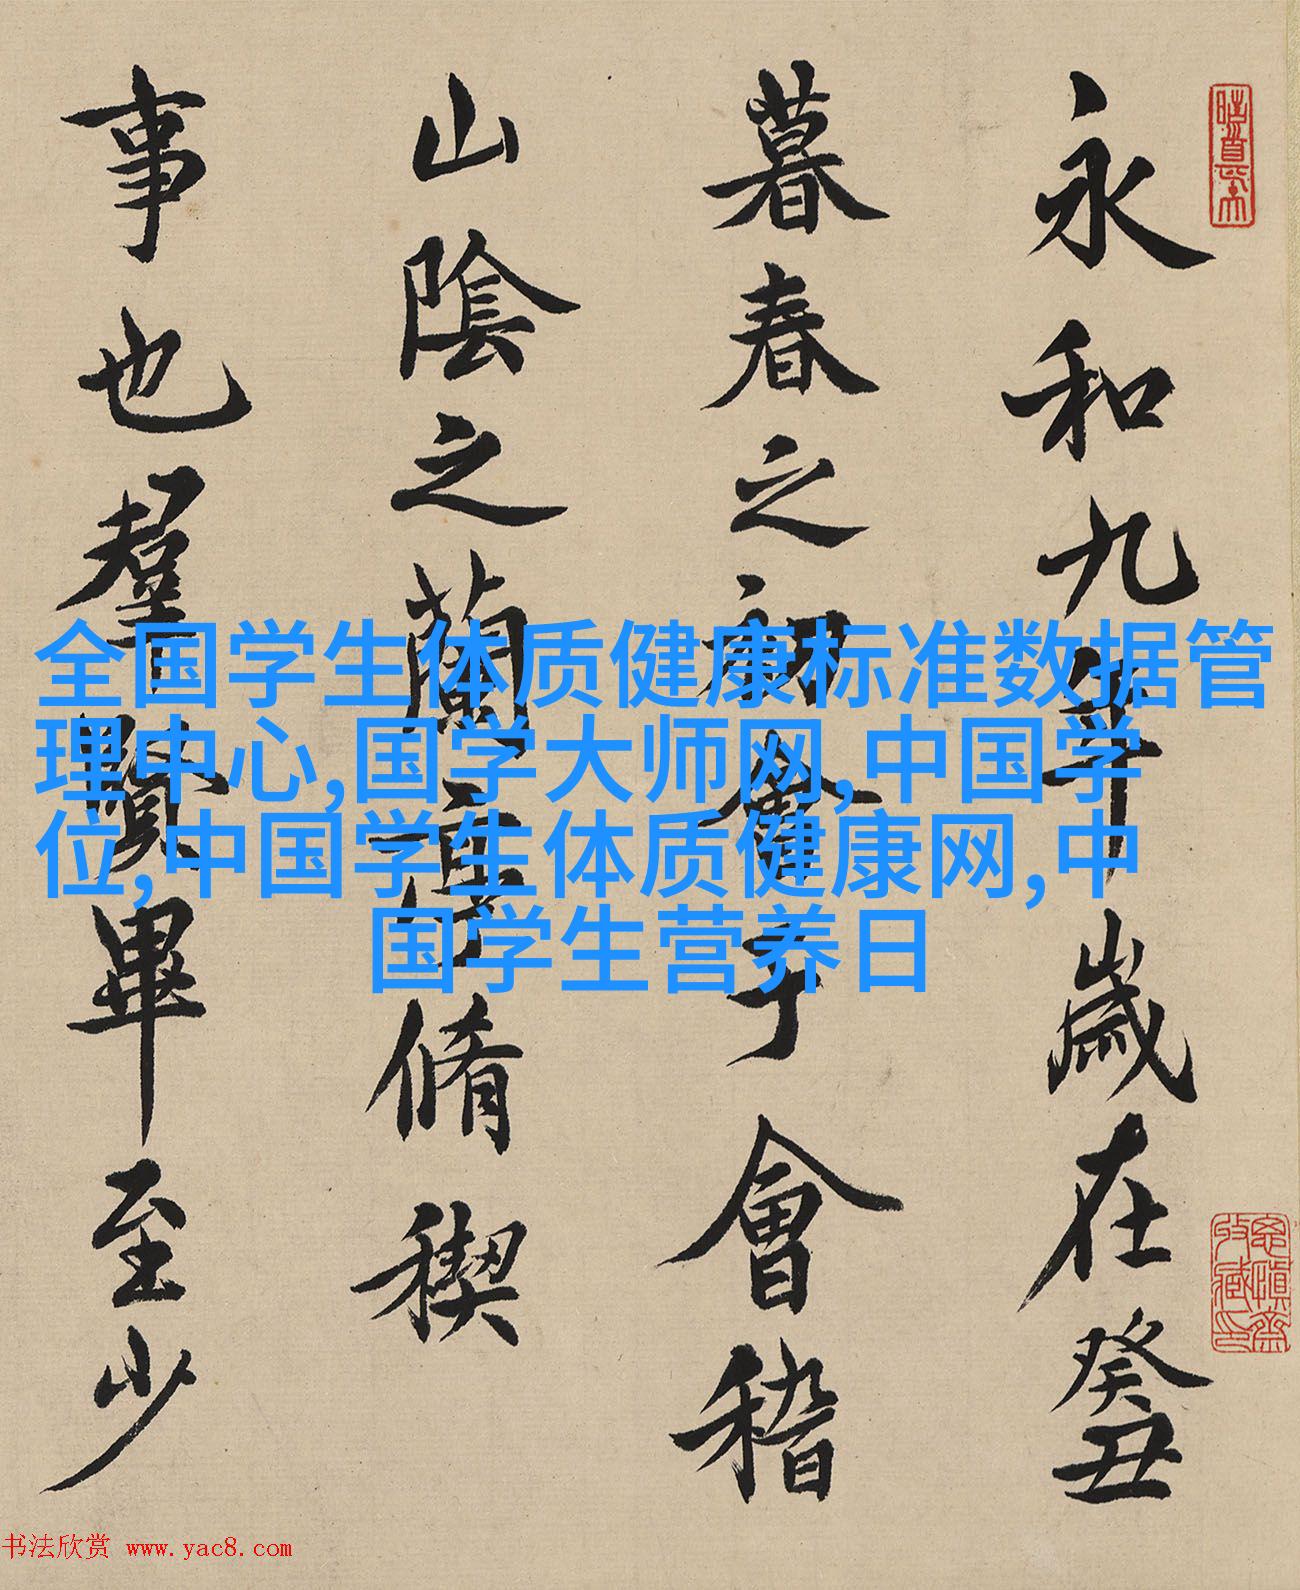 永和九年歲在癸丑
暮春之初會于會稽
山陰之蘭亭脩稧
事也羣賢畢至少
全国学生体质健康标准数据管
理中心,国学大师网,中国学
位,中国学生体质健康网,中
国学生营养日
书法欣赏 www.yac8.com